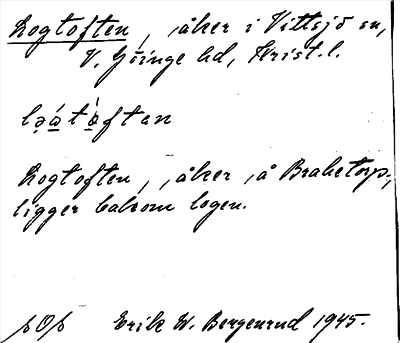 Logtoften, åker i Vittsjö sn,
V. Göinge hd, Krist. l.
Logtoften, åker å Braketorp,
ligger bakom logen.
pOp Erik W. Bergenrud 1945.